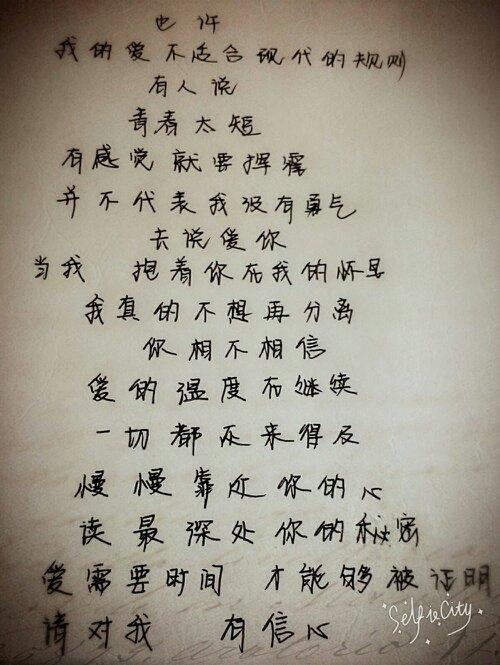 也许
我的爱不适合现代的规则
有人说
青春太短
有感觉就要挥霍
并不代表我没有勇气
去说爱你
当我 抱着你在我的怀里
我真的不想再分离
你相不相信
爱的温度在继续
一切都还来得及
慢慢靠近你的心
读最深处你的秘密
爱需要时间 才能够被证明
请对我 有信心
SelfieCity